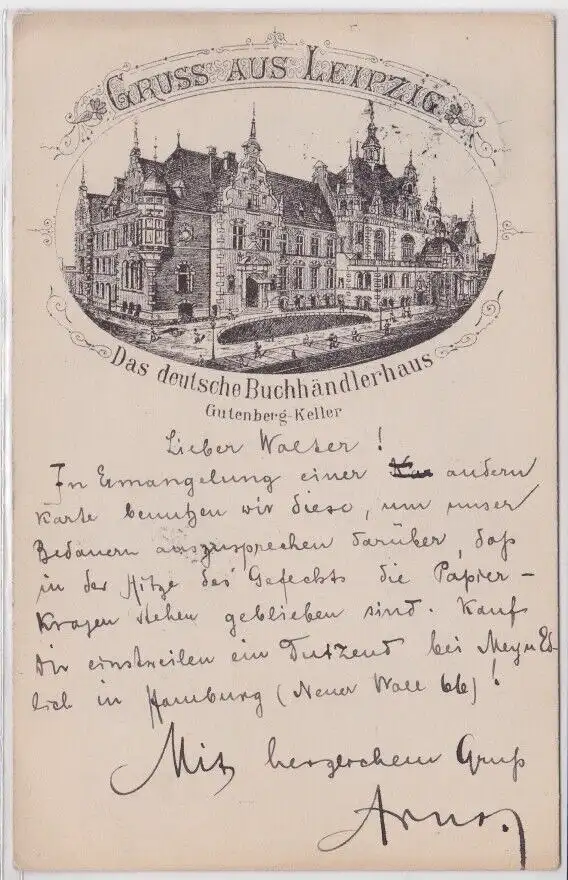 GRUSS AUS LEIPZIG
Das deutsche Buchhändlerhaus
Gutenberg-Keller
Lieber Walter!
In Ermangelung einer andern
Karte benutzen wir diese, um unser
Bedauern auszusprechen darüber, daß
in der Hitze des Gefechts die Papier-
Kragen stehen geblieben sind. Kauf
Dir einstweilen ein Dutzend bei Mey u Ed-
lich in Hamburg (Neuer Wall 66)!
Mit herzlichem Gruß